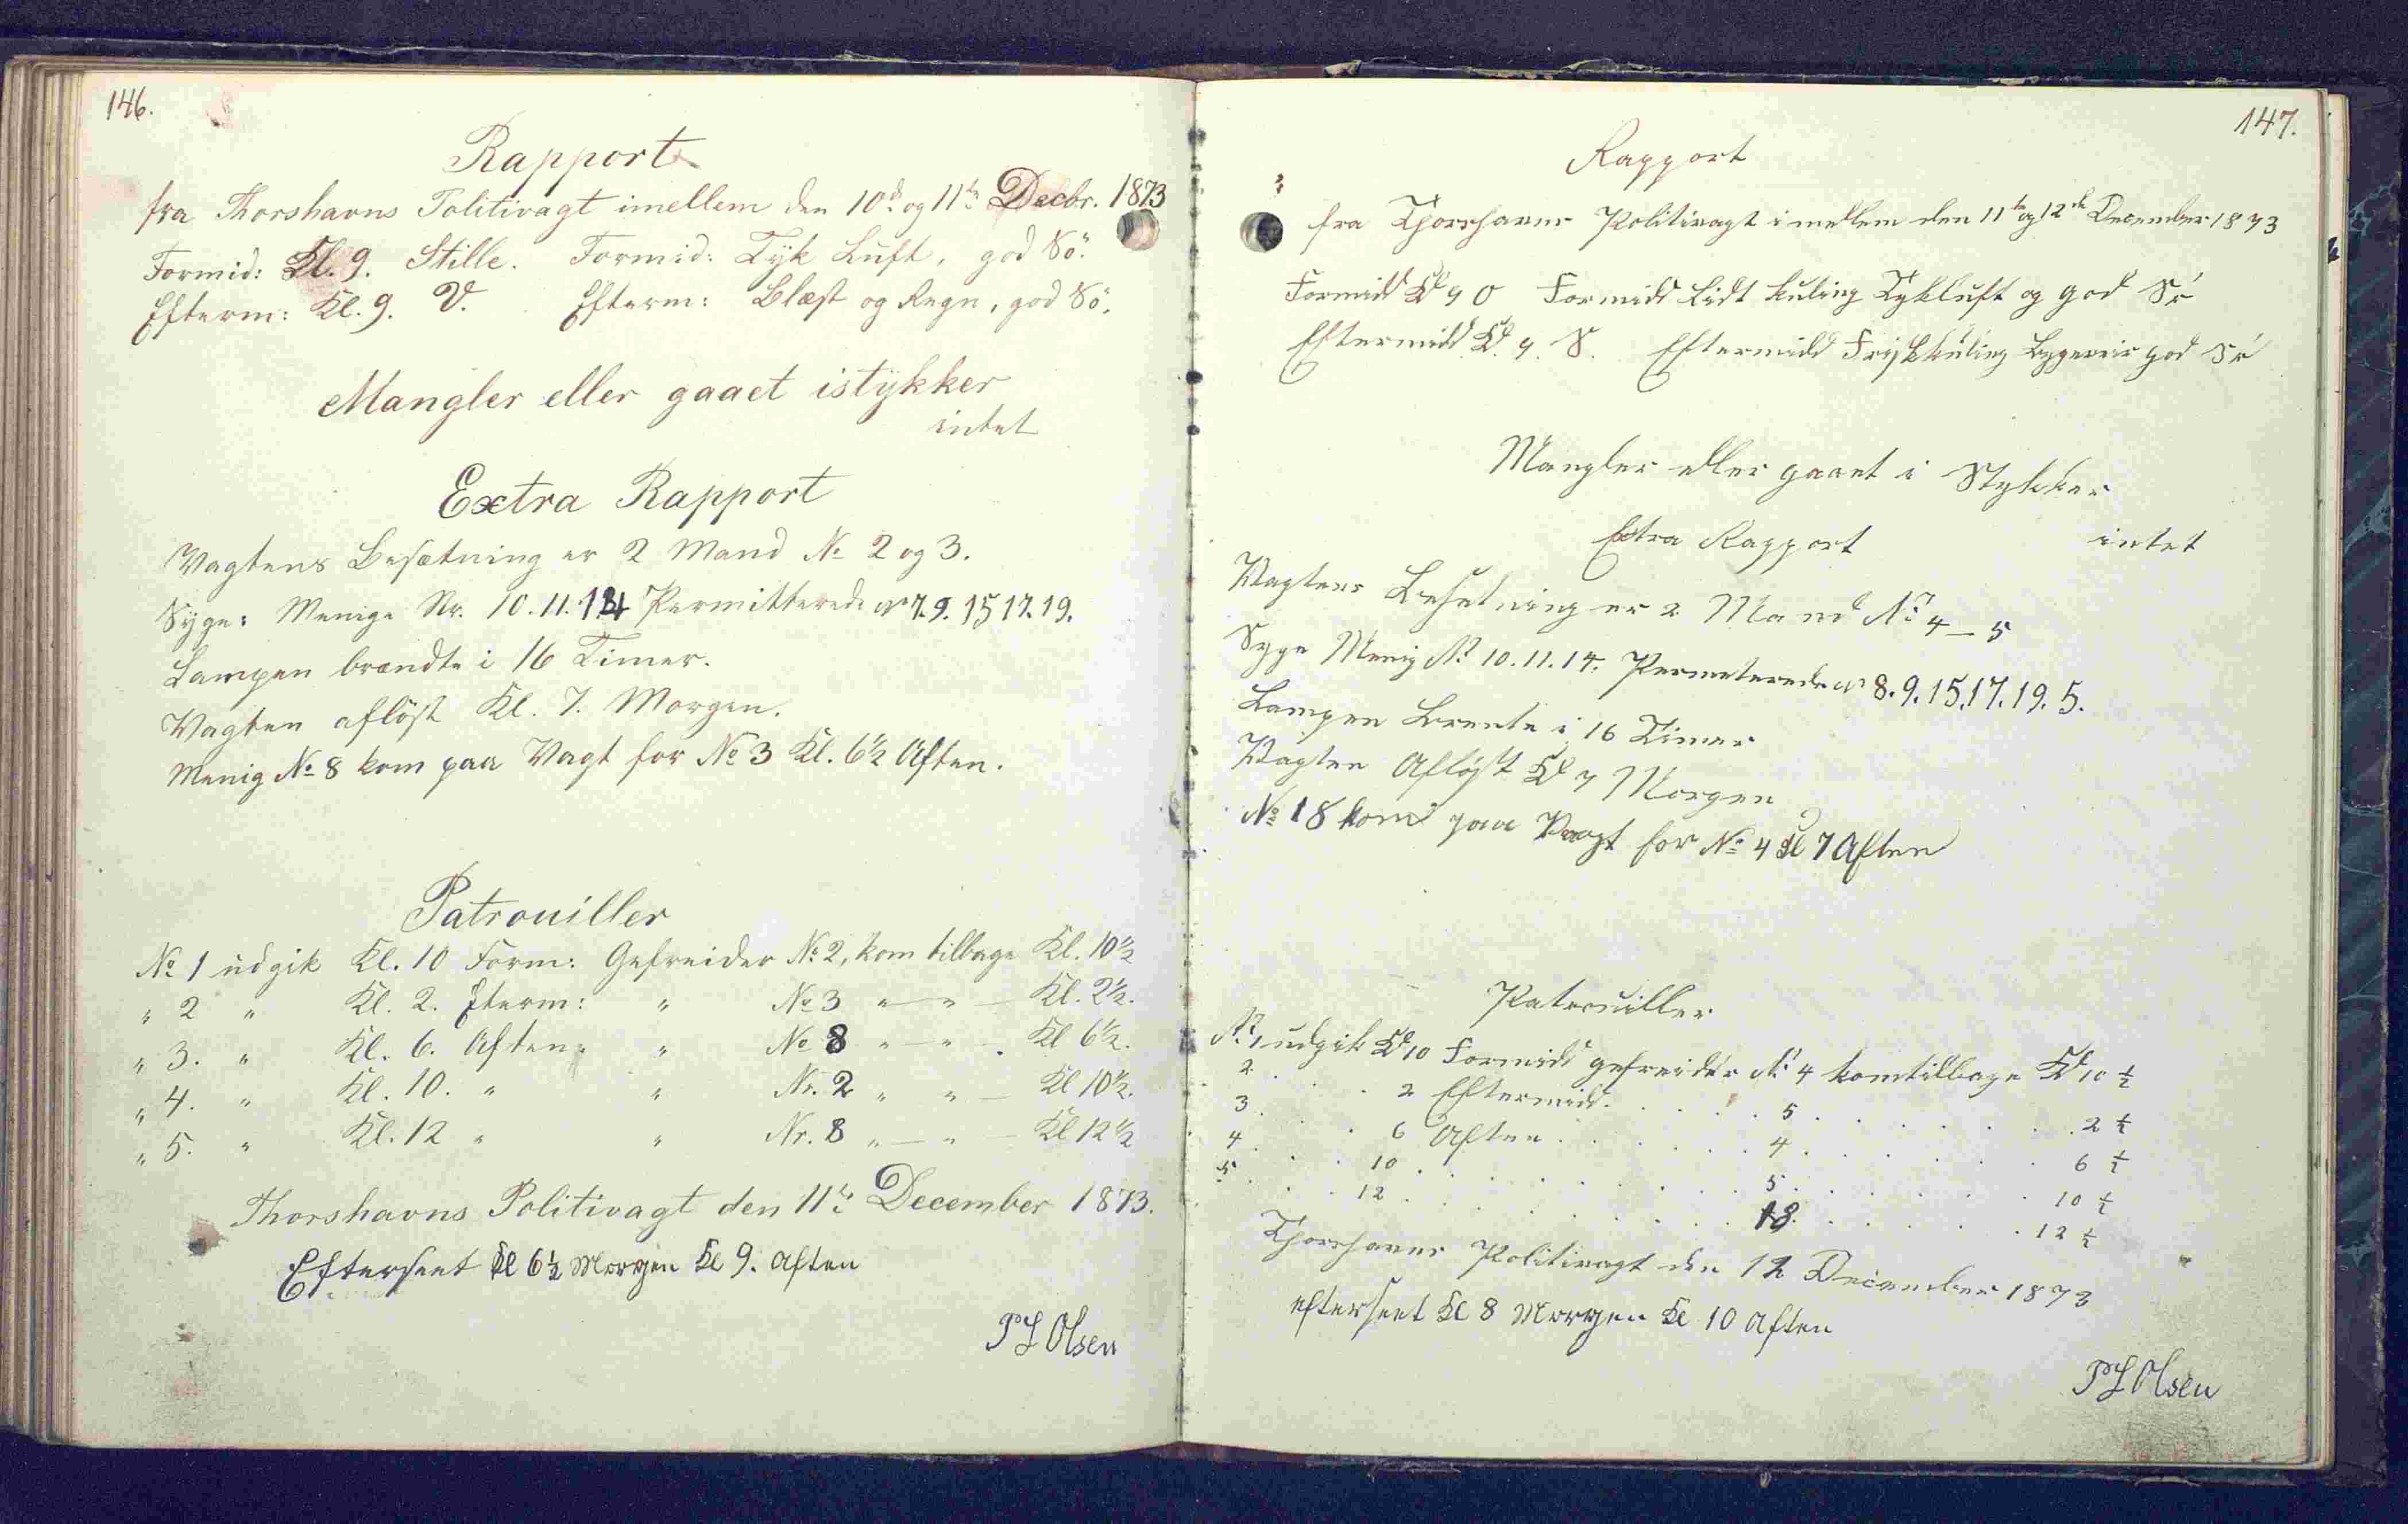 146.
Rapport
fra Thorshavns Politivagt imellem den 10de og 11te Decbr. 1873
Formid: Kl. 9. Stille. Formid: Tyk Luft, god Sö.
Efterm: Kl. 9. V. Efterm: Blæst og Regn, god Sö.
Mangler eller gaaet istykker
intet
Extra Rapport
Vagtens Besætning er 2 Mand No 2 og 3.
Syge: Menige Nr. 10. 11. 14 Permitterede No 7. 9. 15 17. 19.
Lampen brændte i 16 Timer.
Vagten aflöst Kl. 7. Morgen.
Menig No 8 kom paa Vagt for No 3 Kl. 6½ Aften.
Patrouiller
No 1 udgik Kl. 10 Form: Gefreider No 2, kom tilbage Kl. 10½
" 2 " Kl. 2. Efterm: " No 3 " — " — Kl. 2½.
" 3. " Kl. 6. Aften " No 8 " — " . Kl 6½.
" 4. " Kl. 10. " " Nr. 2 " " — Kl 10½.
" 5. " Kl. 12 " " Nr. 8 " — " — Kl 12½
Thorshavns Politivagt den 11te December 1873.
Efterseet Kl 6½ Morgen Kl 9. Aften
P L Olsen
147.
Rapport
fra Thorshavns Politivagt imellem den 11te og 12te December 1873
Formidd Kl 9 O Formidd Lidt kuling Tykluft og god Sö
Eftermidd Kl. 9. S. Eftermidd Friskkuling god Sö
Mangler eller gaaet i Stykker
intet
Extra Rapport
Vagtens Besetning er 2 Mand No 4 — 5
Syge Menig No 10. 11. 14. Permeterede No 8. 9. 15. 17. 19. 5.
Lampen Brente i 16 Timer
Vagten Afløst Kl 7 Morgen
No 18 kom paa Vagt for No 4 Kl 7 Aften
Patrouiller
No 1 udgik Kl 10 Formidd gefreider No 4 komtilbage Kl 10 ½
2 . . . 2 Eftermidd . . . 5 . . . 2 ½
3 . . . 6 Aften . . . 4 . . . 6 ½
4 . . . 10 . . . 5 . . . 10 ½
5 . . . 12 . . . 18 . . . 12 ½
Thorshavns Politivagt den 12 December 1873
efterseet Kl 8 Morgen Kl 10 Aften
P L Olsen